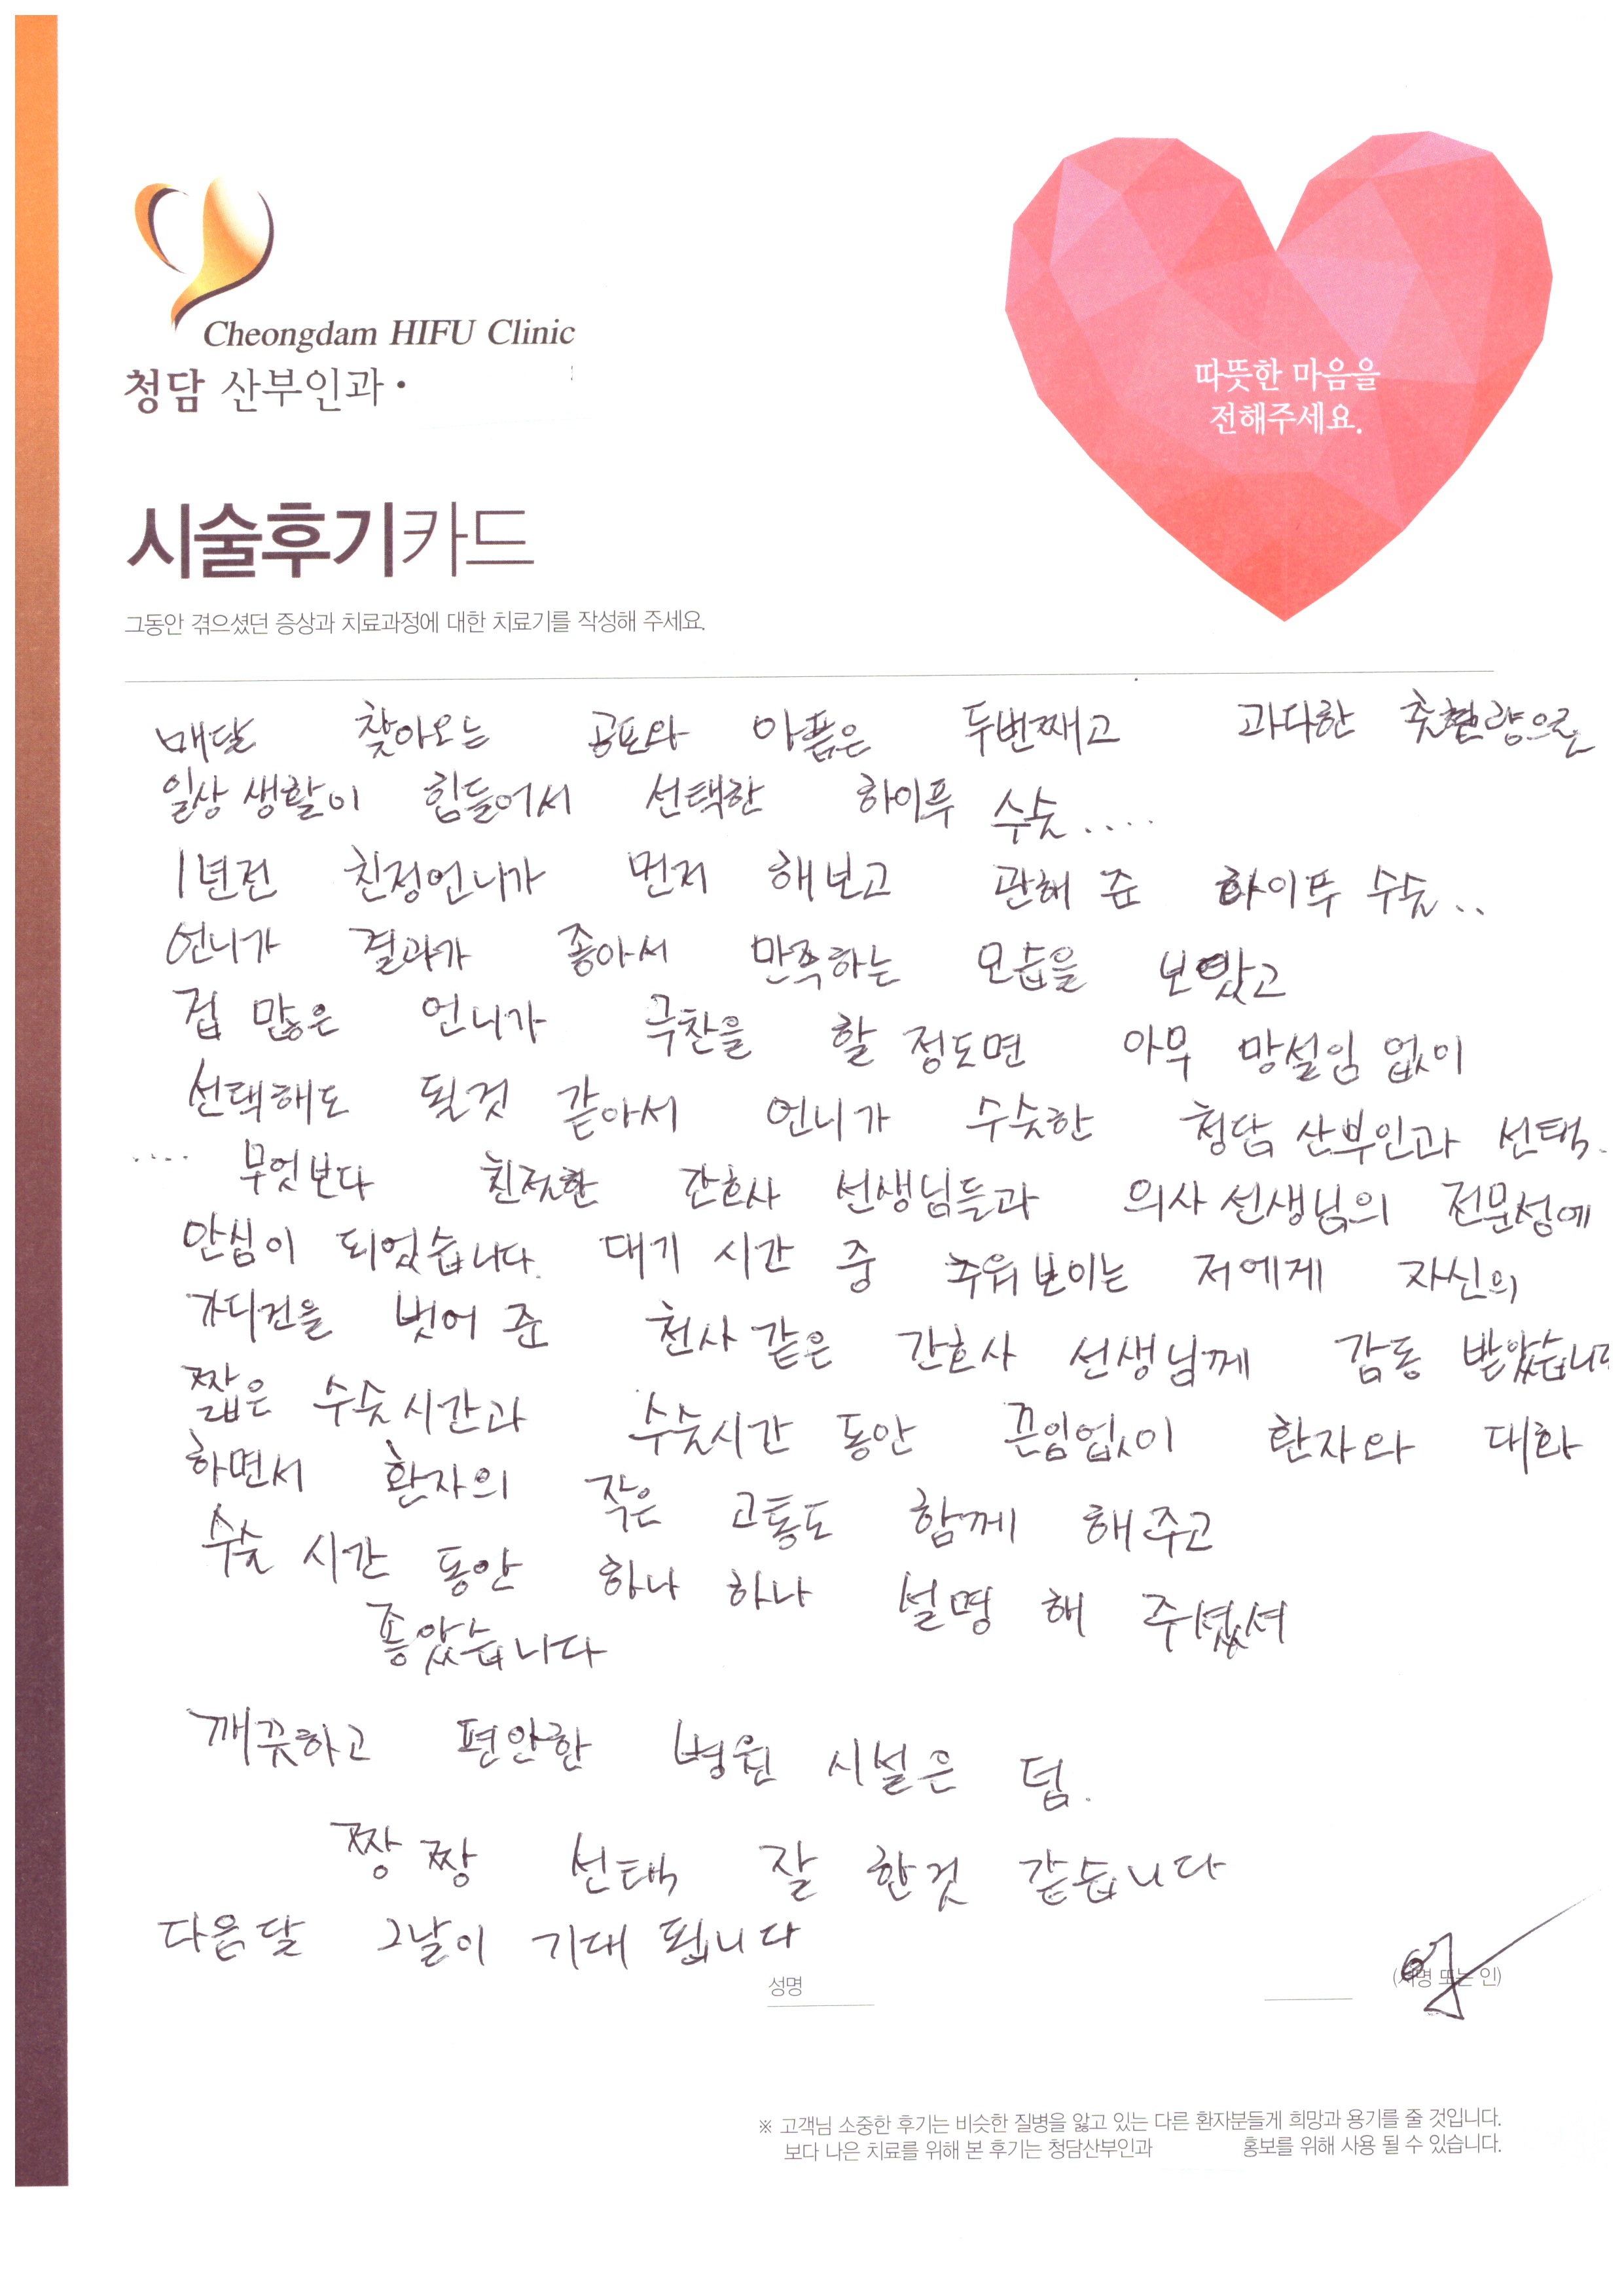 Cheongdam HIFU Clinic
청담 산부인과 •
따뜻한 마음을
전해주세요.
시술후기카드
그동안 겪으셨던 증상과 치료과정에 대한 치료기를 작성해 주세요.
매달 찾아오는 공포와 아픔은 두번째고 과다한 출혈량으로
일상 생활이 힘들어서 선택한 하이푸 수술....
1년전 친정언니가 먼저 해보고 관해 준 하이푸 수술..
언니가 결과가 좋아서 만족하는 모습을 보았고
겁 많은 언니가 극찬을 할 정도면 아무 망설임 없이
선택해도 될것 같아서 언니가 수술한 청담 산부인과 선택.
.... 무엇보다 친절한 간호사 선생님들과 의사 선생님의 전문성에
안심이 되었습니다. 대기 시간 중 추워 보이는 저에게 자신의
가디건을 벗어 준 천사 같은 간호사 선생님께 감동 받았습니다
짧은 수술시간과 수술시간 동안 끈임없이 환자와 대화
하면서 환자의 작은 고통도 함께 해주고
수술 시간 동안 하나 하나 설명 해 주셨셔
좋았습니다
깨끗하고 편안한 병원 시설은 덤.
짱 짱 선택 잘 한것 같습니다
다음달 그날이 기대 됩니다
성명 (서명 또는 인)
※ 고객님 소중한 후기는 비슷한 질병을 앓고 있는 다른 환자분들게 희망과 용기를 줄 것입니다.
보다 나은 치료를 위해 본 후기는 청담산부인과 홍보를 위해 사용 될 수 있습니다.